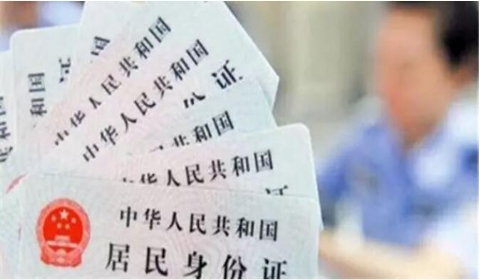 国
国
中华人民共和国
中华人民共和国
身份证
中华人民共和国
人民共和国
中华人民共和国
居民身份证